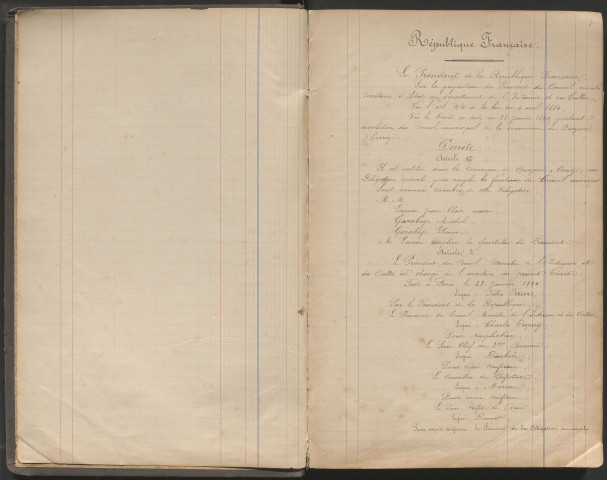 République Française.
Le Président de la République Française,
Sur la proposition du Président du Conseil, ministre
Secrétaire d'Etat au département de l'Intérieur et des Cultes,
Vu l'art. 44 de la loi du 5 avril 1884,
Vu le décret en date du 23 Janvier 1899 prononçant
dissolution du Conseil municipal de la commune de
Corrèze
Décrète
Article 1er
Il est institué dans la commune de (Corrèze) une
Délégation spéciale pour remplir les fonctions de Conseil municipal
Sont nommés membres de cette Délégation
M. M.
Jean
Michel
Etienne
M. remplira les fonctions de Président
Article 2
Le Président du Conseil, Ministre de l'Intérieur et
des Cultes est chargé de l'exécution du présent décret.
Fait à Paris, le 28 Janvier 1899
Signé: Félix Faure
Par le Président de la République
Le Président du Conseil, Ministre de l'Intérieur et des Cultes
Signé: Charles Dupuy
Pour ampliation
Le Sous Chef du 2me Bureau
Signé:
Pour copie conforme
Le Conseiller de Préfecture
Signé:
Pour copie conforme
Le Sous Préfet
Signé:
Pour copie conforme le Président de la Délégation municipale